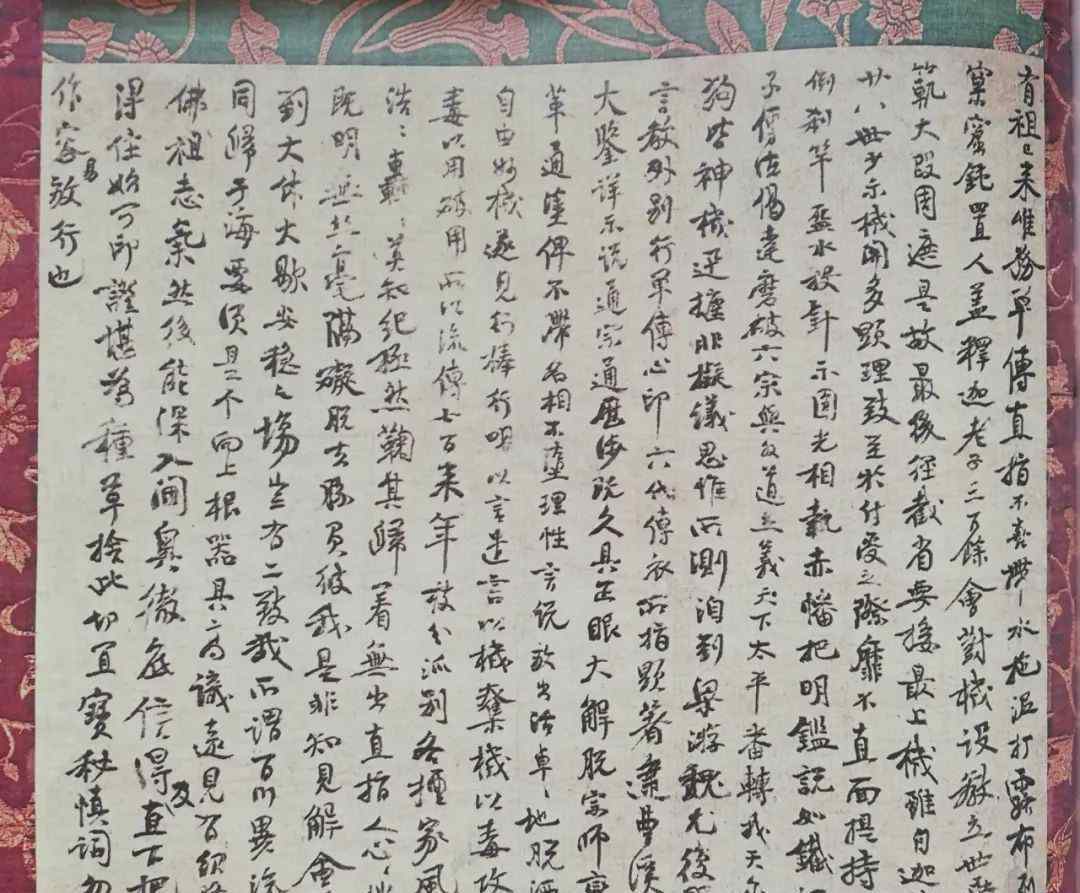 有祖已來唯務單傳直指不喜帶水拖泥打露布列
窠窟鈍置人蓋釋迦老子三百餘會對機設教立世
範大段周遮是故最後徑截省要接最上機雖自迦
廿八世少示機關多顯理致至於付受之際靡不直面提持
倒刹竿盌水投針示圓光相執赤幡把明鑑說如鐵
子傳法偈達磨破六宗與外道立義天下太平番轉我天尔
狗皆神機迅捷非擬議思惟所測洎到梁游魏尤復
言教外別行單傳心印六代傳衣所指顯著逮曹溪
大鑒詳示說通宗通歷涉既久具正眼大解脫宗師
革通塗俾不滯名相不墮理性言說放出活卓ミ地脫洒
自由妙機遂見行棒行喝以言遣言以機奪機以毒攻
毒以用破用所以流傳七百來年枝分派別各擅家風
浩ミ轟ミ莫知紀極然鞠其歸著無出直指人心
既明無絲毫隔礙脫去勝負彼我是非知見解會
到大休大歇安穩之場豈有二致哉所謂百川異流
同歸于海要須是个向上根器具高識遠見有紹隆
佛祖志氣然後能深入閫奧徹底信得及直下把
得住始可印證堪為種草捨此切宜寶秘慎詞勿
作容易放行也